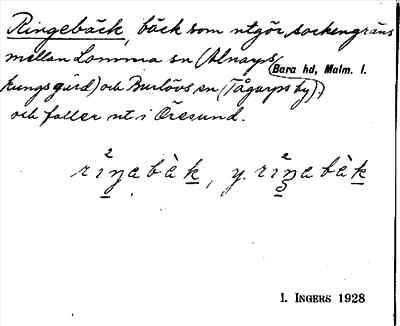 Ringebäck, bäck som utgör sockengräns
mellan Lomma sn (Alnarps
Bara hd, Malm. l.
kungsgård) och Burlövs sn (Tågarps by),
och faller ut i Öresund.
rịŋabàḳ, y. rịŋabàḳ
I. INGERS 1928